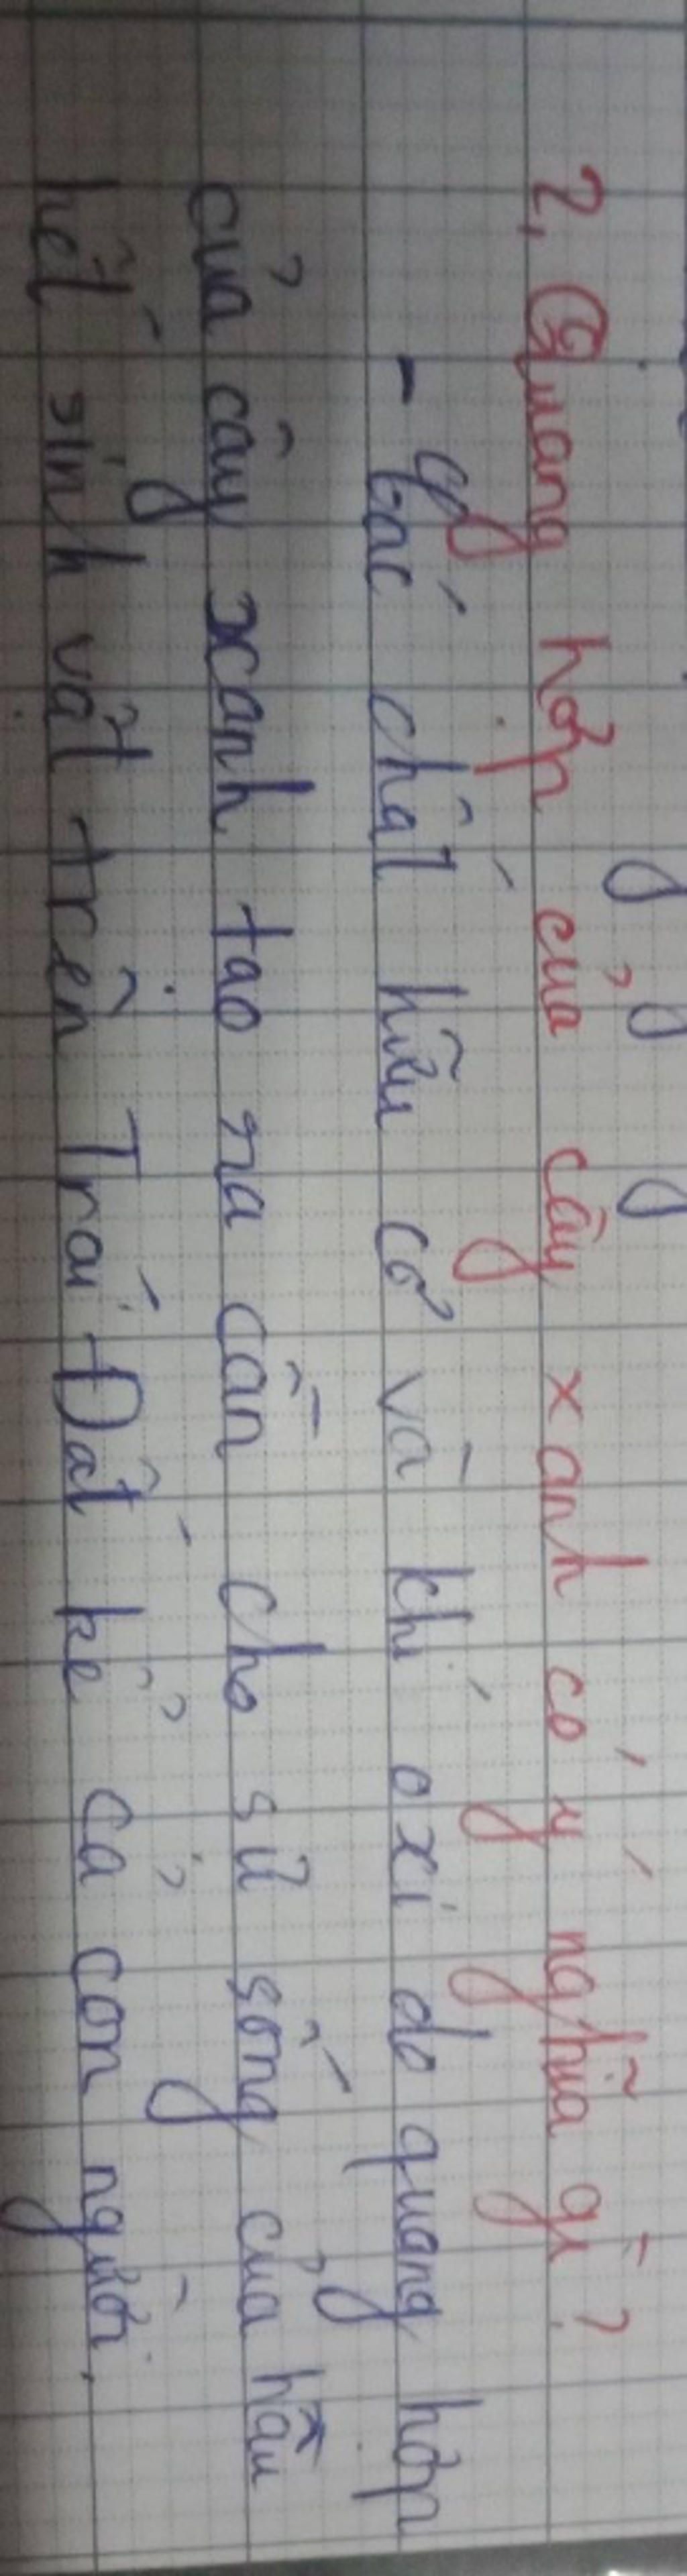 2, Quang hợp của cây xanh có ý nghĩa gì?
- Các chất hữu cơ và khí oxi do quang hợp
của cây xanh tạo ra cần cho sự sống của hầu
hết sinh vật trên Trái Đất kể cả con người.